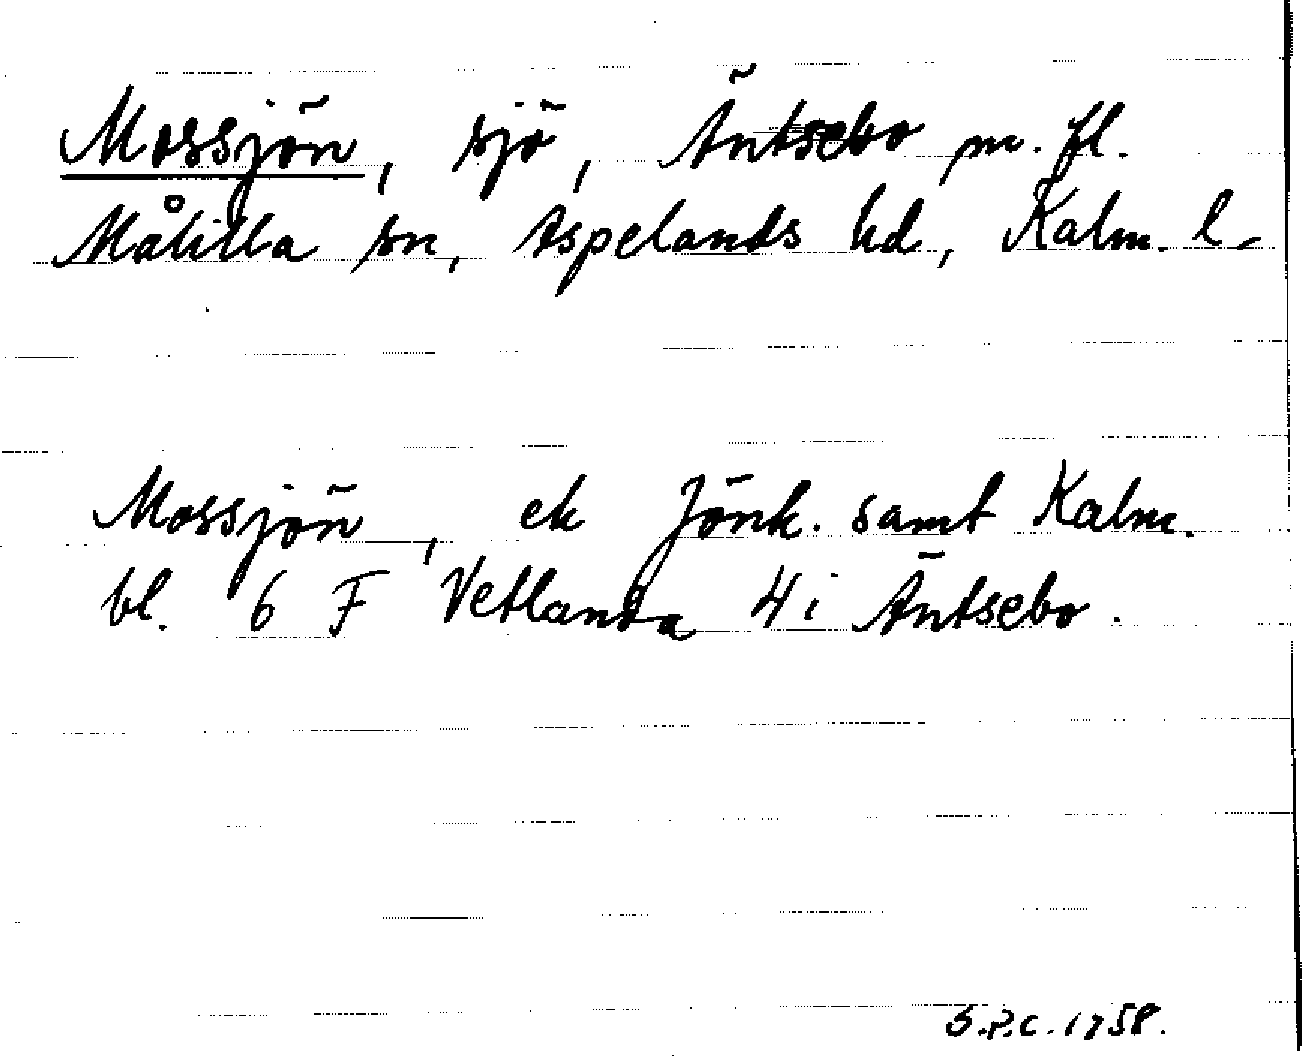 Mossjön, sjö, Äntsebo m. fl.
Målilla sn, Aspelands hd, Kalm. l
Mossjön, ek Jönk. samt Kalm.
bl. 6 F Vetlanda 4i Äntsebo.
S.P.C. 1758.